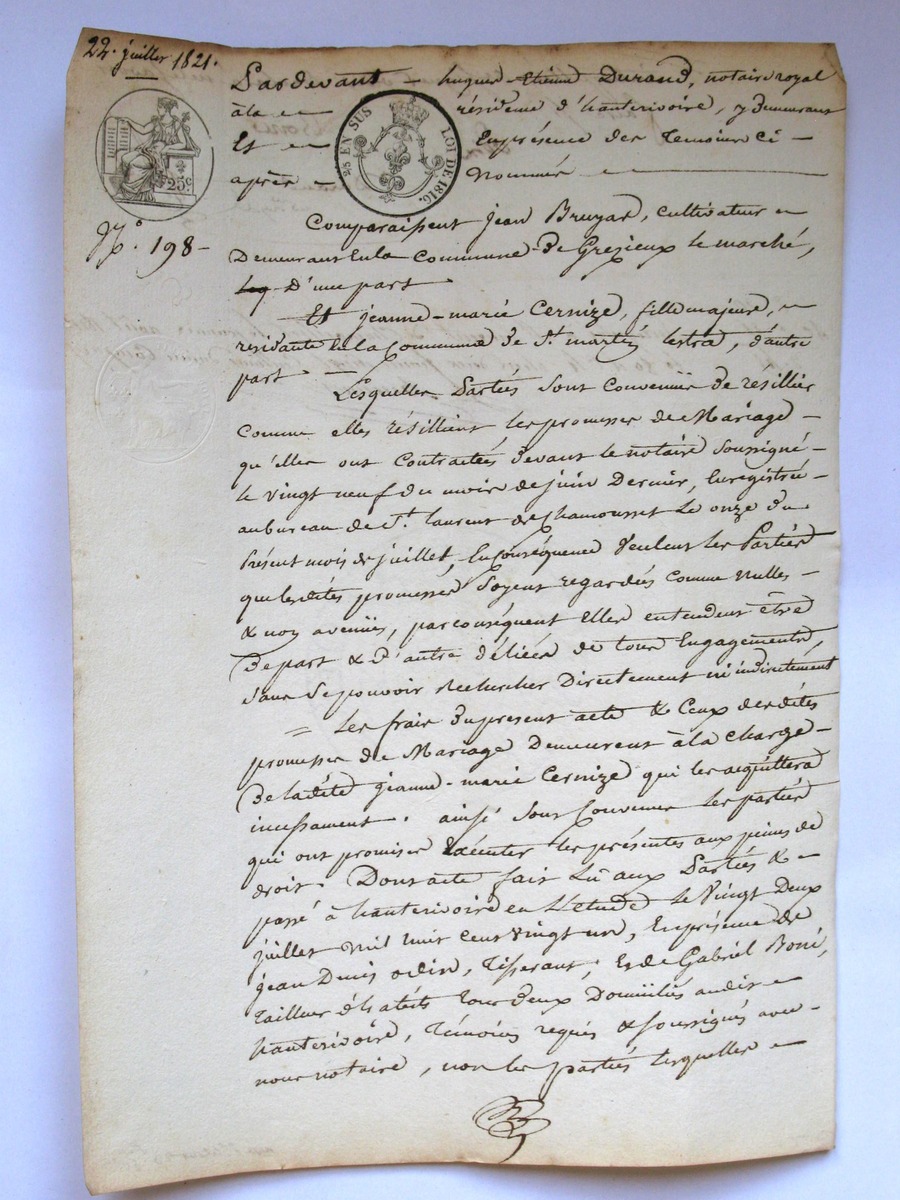 22. juillet 1821.
Pardevant - hugues-Etienne Durand, notaire royal
à la - résidence d'hauterivoire, y demeurant
Et - En présence des Temoins Ci -
après - Nommés -
25 EN SUS LOI DE 1816.
25c
No. 198 -
Comparaissent jean Bruyas, cultivateur
Demeurant en la Commune de Grezieux le marché,
D'une part
Et jeanne-marie Cernize, fille majeure,
residante en la Commune de St. martin lestra, d'autre
part -
Lesquelles Parties sont Convenües de résillier
comme elles résillient les promesses de Mariage -
qu'elles ont Contractées devant le notaire soussigné -
le vingt neuf du mois de juin Dernier, Enregistrée -
au bureau de St. laurent de Chamousset le onze du
Présent mois de juillet, En conséquence Veulent les Parties
que les dites promesses soyent regardées comme Nulles -
& non avenües, par conséquent Elles entendent être
De part & D'autre déliées de tous Engagements,
sans se pouvoir rechercher Directement ni indirectement
= Les frais du present acte & Ceux des dites
promesses de Mariage Demeurent à la Charge -
De la dite jeanne-marie Cernize qui les acquittera
incessament. ainsi sont Convenues les parties
qui ont promises Exécuter les présentes aux peines de
droit. Dont acte fait Lu aux Parties &
passé à hauterivoire en L'Etude le Vingt Deux
juillet mil huit cent vingt un, En présence de
jean Denis odin, Tisserant, Et de Gabriel Boni,
Tailleur d'habits tous deux Domiciliés audit
hauterivoire, témoins requis & soussignés avec -
nous notaire, non les parties lesquelles